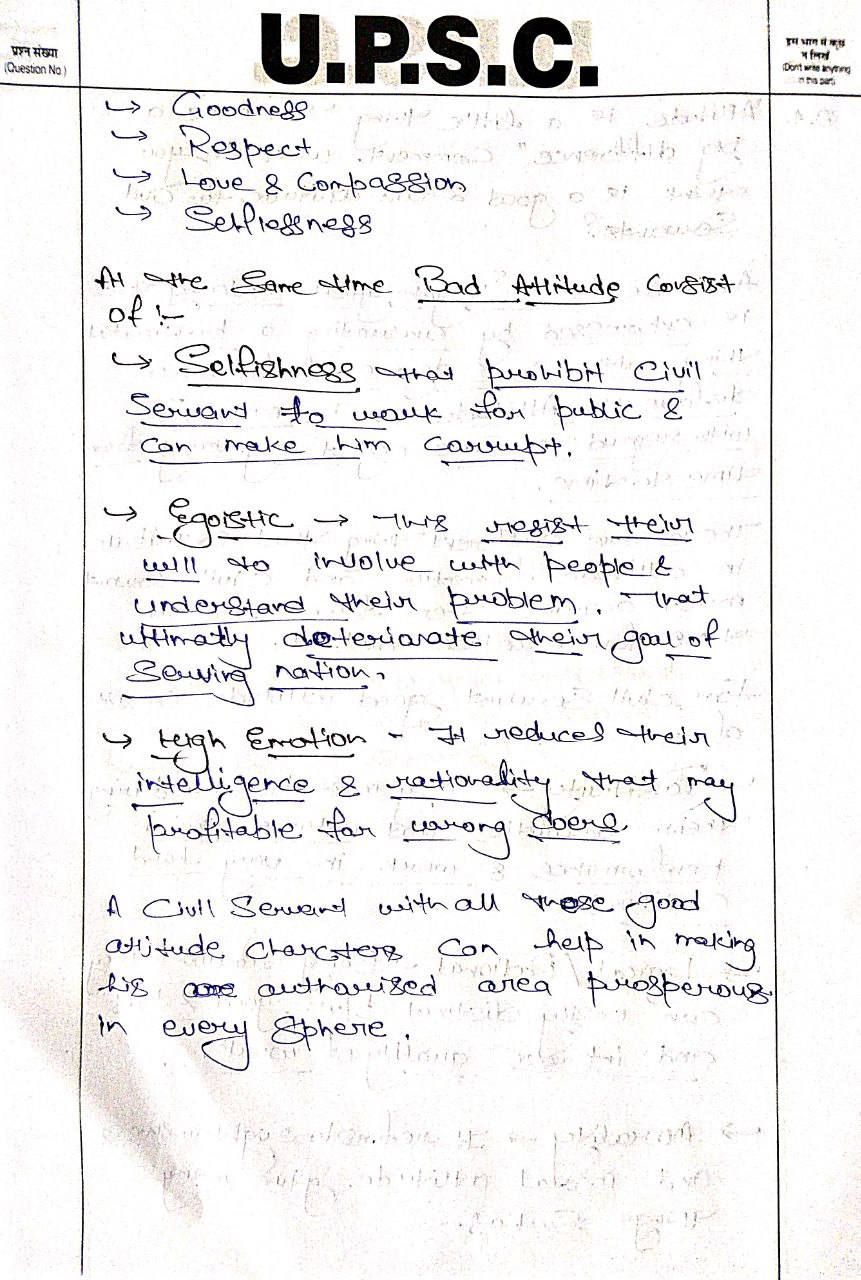 U.P.S.C.
प्रश्न संख्या
(Question No)
इस भाग में कुछ
न लिखें
(Don't write anything
in this part)
→ Goodness
→ Respect
→ Love & Compassion
→ Selflessness
At the same time Bad Attitude consist
of :-
→ Selfishness that prohibit Civil
Servant to work for public &
can make him corrupt.
→ Egoistic → This resist their
will to involve with people &
understand their problem. That
ultimatly deteriarate their goal of
serving nation.
→ High Emotion - It reduces their
intelligence & rationality that may
profitable for wrong doers.
A Civil Servant with all those good
attitude charcters can help in making
his authorised area prosperous
in every sphere.